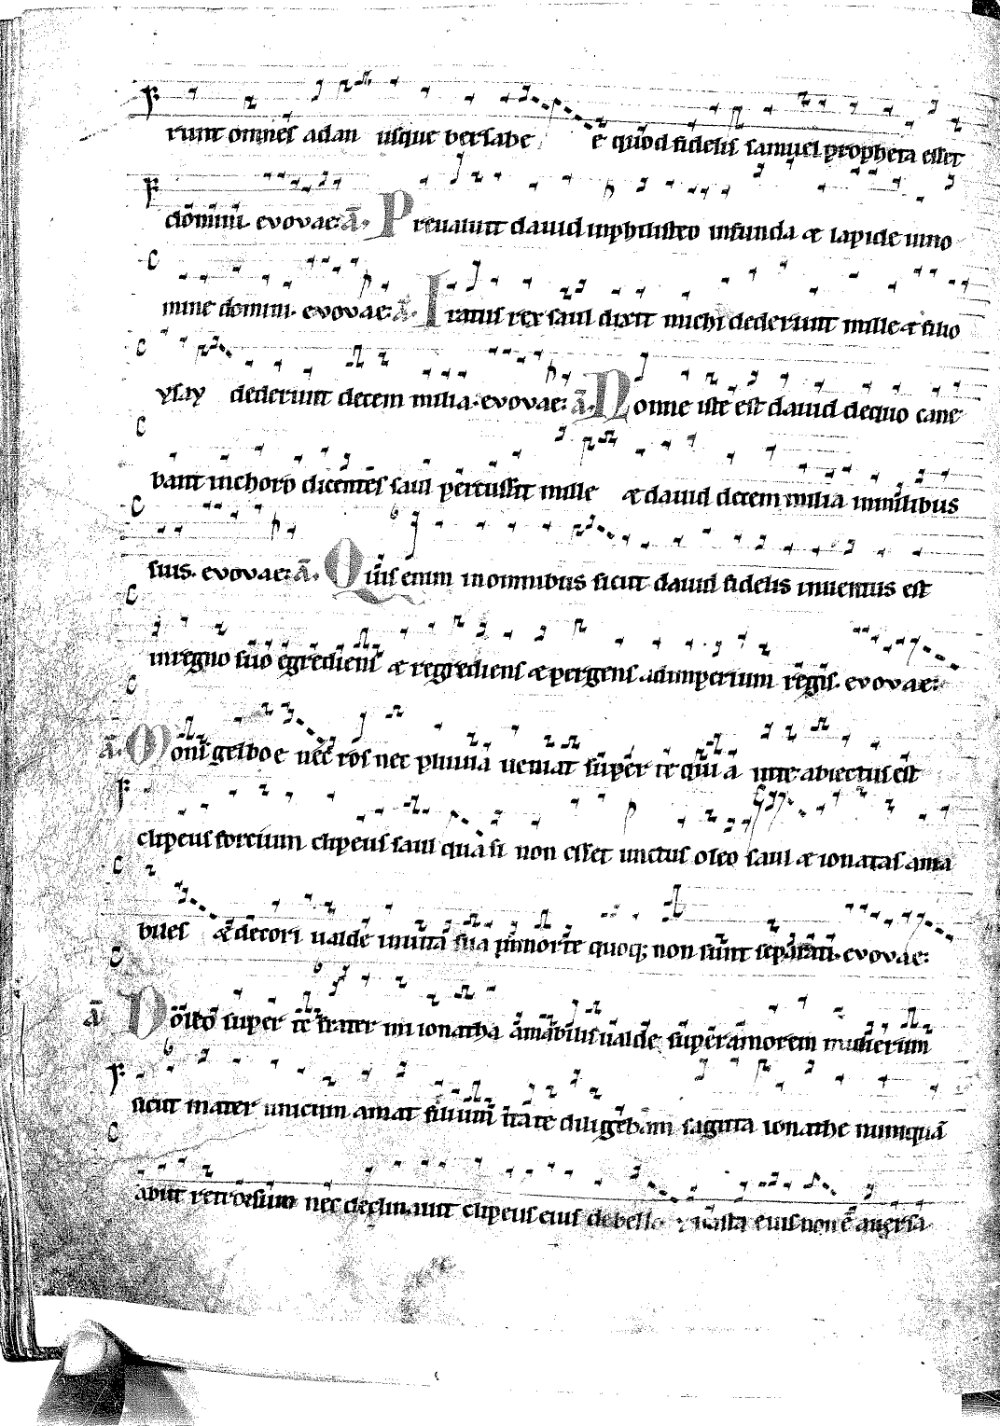 runt omnes adan usque bersabe e quod fidelis samuel propheta esset
domini. evovae: a̅. Prevaluit david in philisteo in funda et lapide in no
mine domini. evovae: a̅. Iratus rex saul dixit michi dederunt mille et filio
ysay dederunt decem milia. evovae: a̅. Nonne iste est david de quo cane
bant in choro dicentes saul percussit mille et david decem milia in milibus
suis. evovae: a̅. Quis enim in omnibus sicut david fidelis inventus est
in regno suo egrediens et regrediens et pergens ad imperium regis. evovae:
a̅. Montes gelboe nec ros nec pluvia veniat super te quia in te abiectus est
clipeus fortium clipeus saul quasi non esset unctus oleo saul et ionatas ama
biles et decori valde in vita sua in morte quoq; non sunt separati. evovae:
a̅ Doleo super te frater mi ionatha amabilis valde super amorem mulierum
sicut mater unicum amat filium ita te diligebam sagitta ionathe numqua̅
abiit retrorsum nec declinavit clipeus eius de bello et hasta eius non e̅ aversa